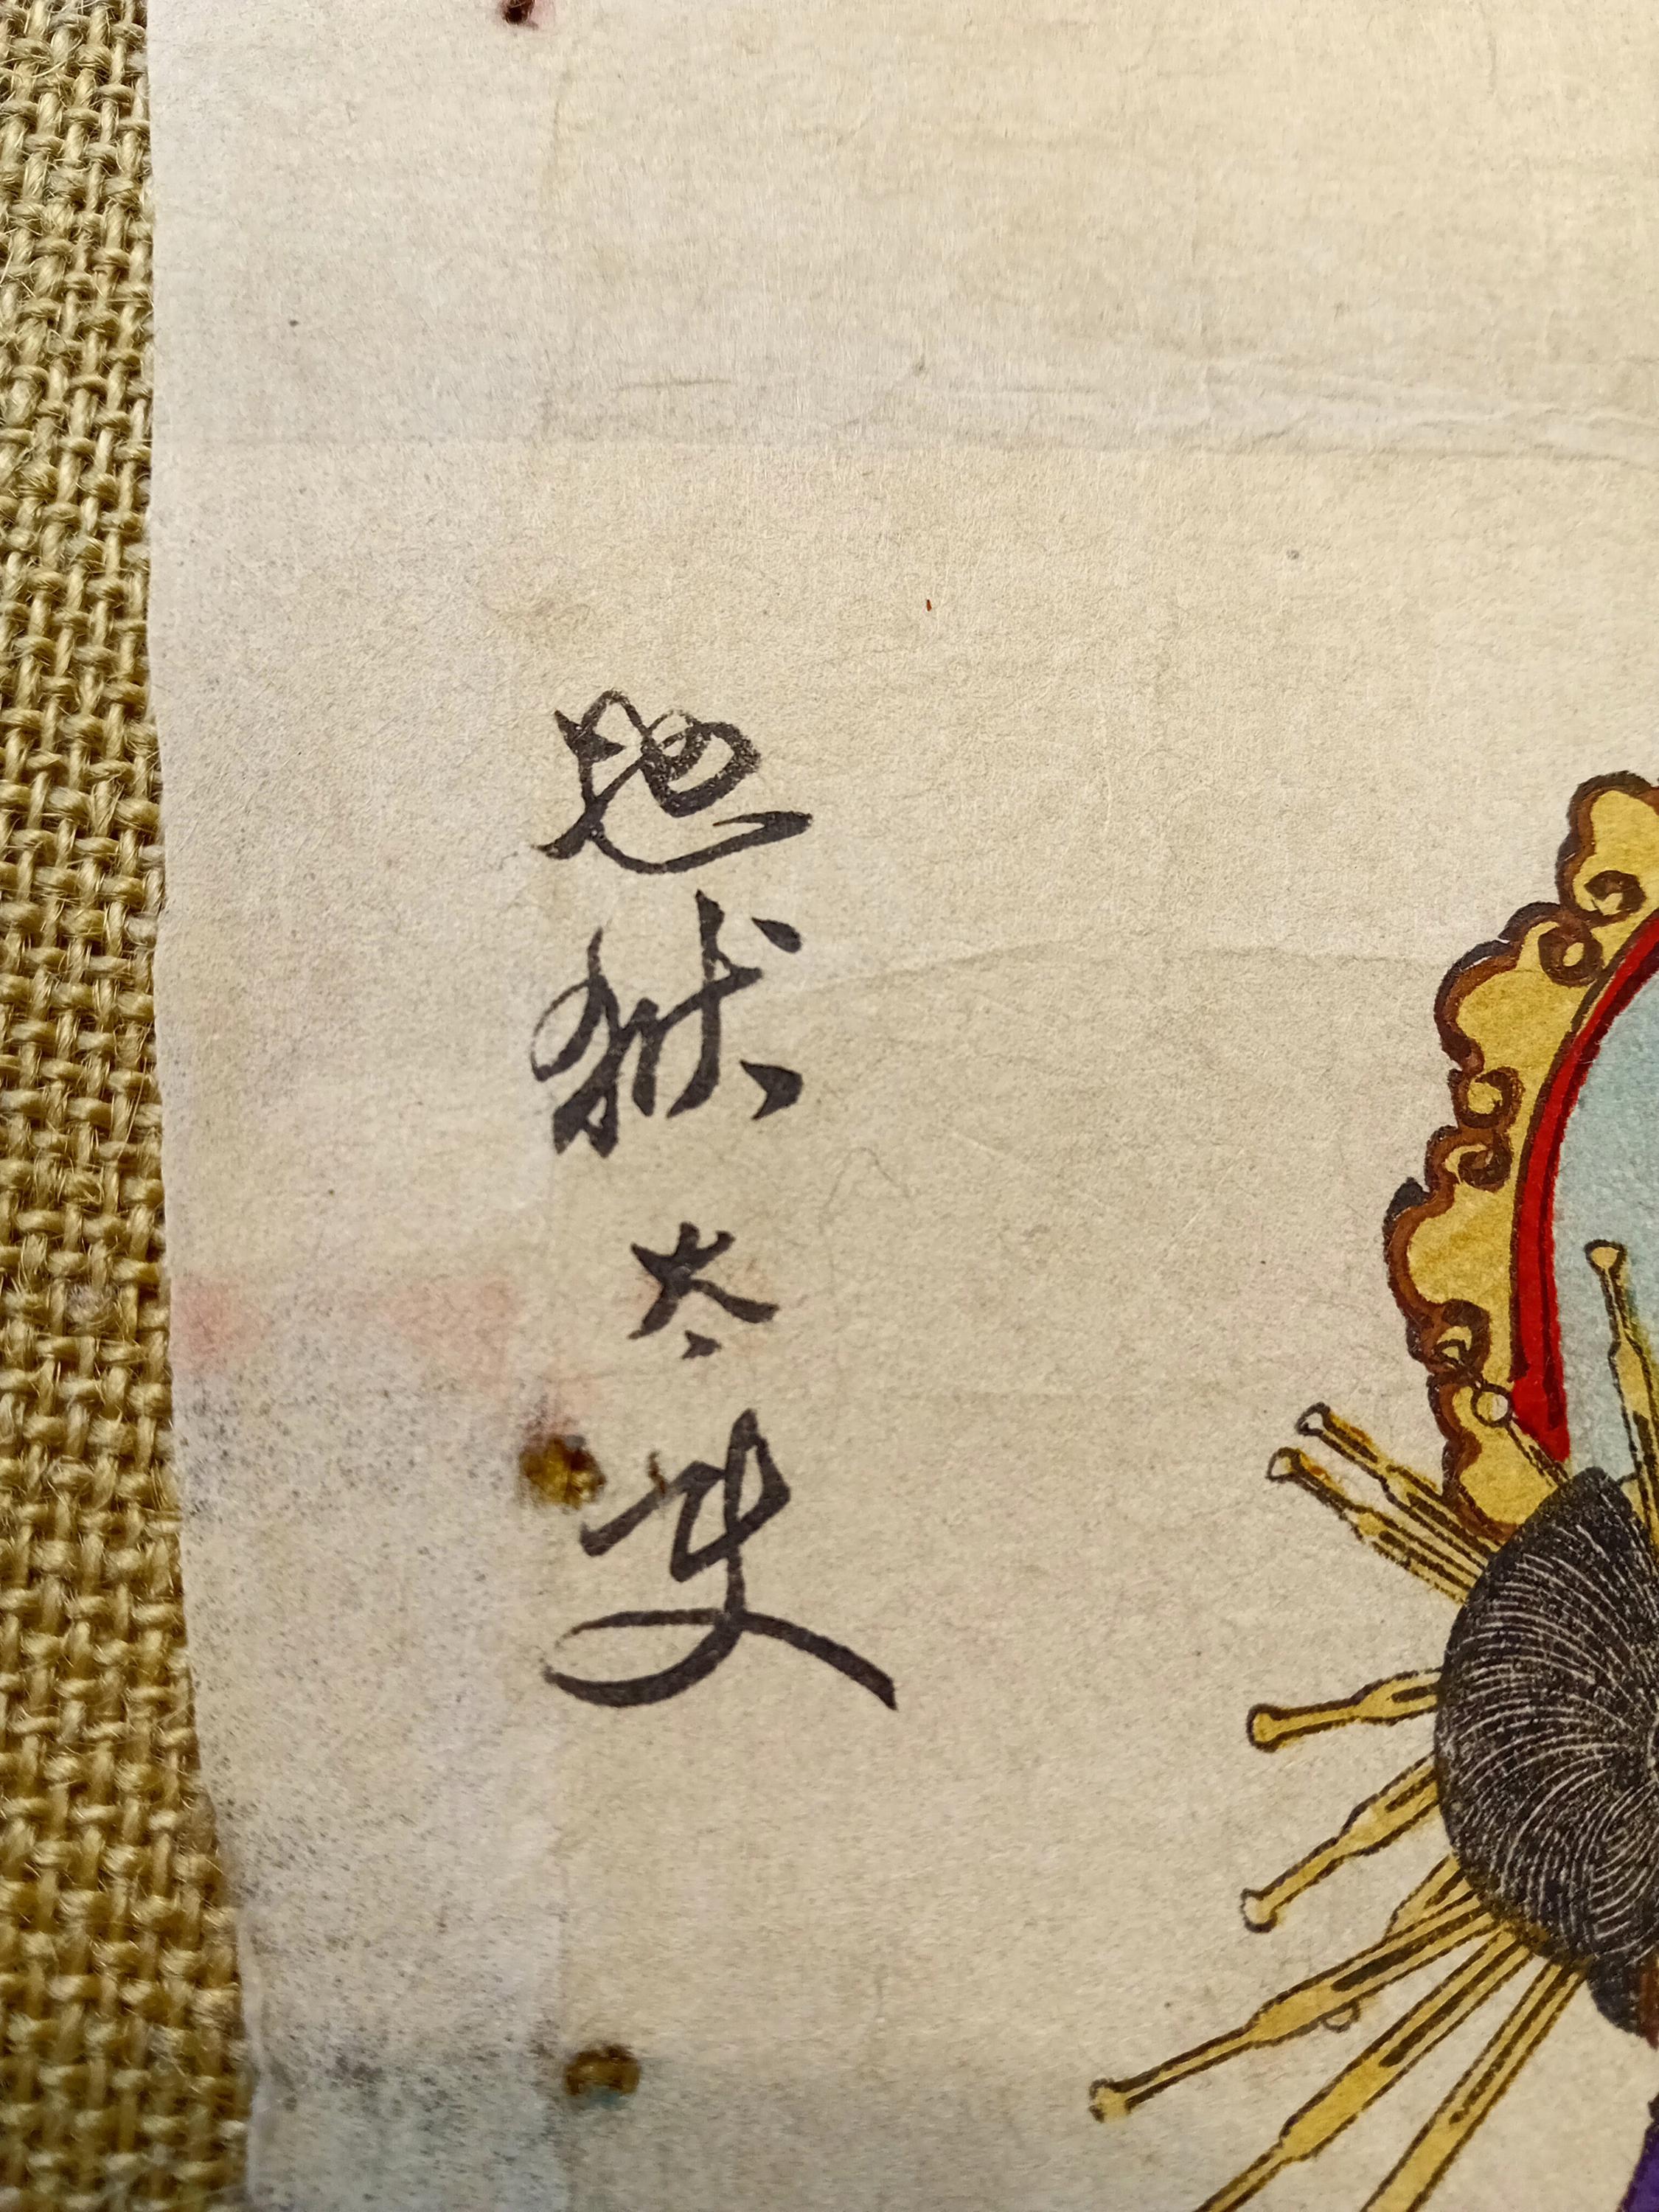 地獄太夫